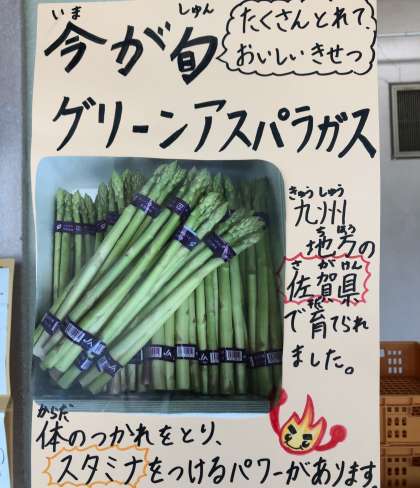 いま しゅん
今が旬
たくさんとれて、
おいしいきせつ
グリーンアスパラガス
きゅうしゅう
九州
ちほう
地方の
さがけん
佐賀県
で育てられ
ました。
からだ
体のつかれをとり、
スタミナをつけるパワーがあります